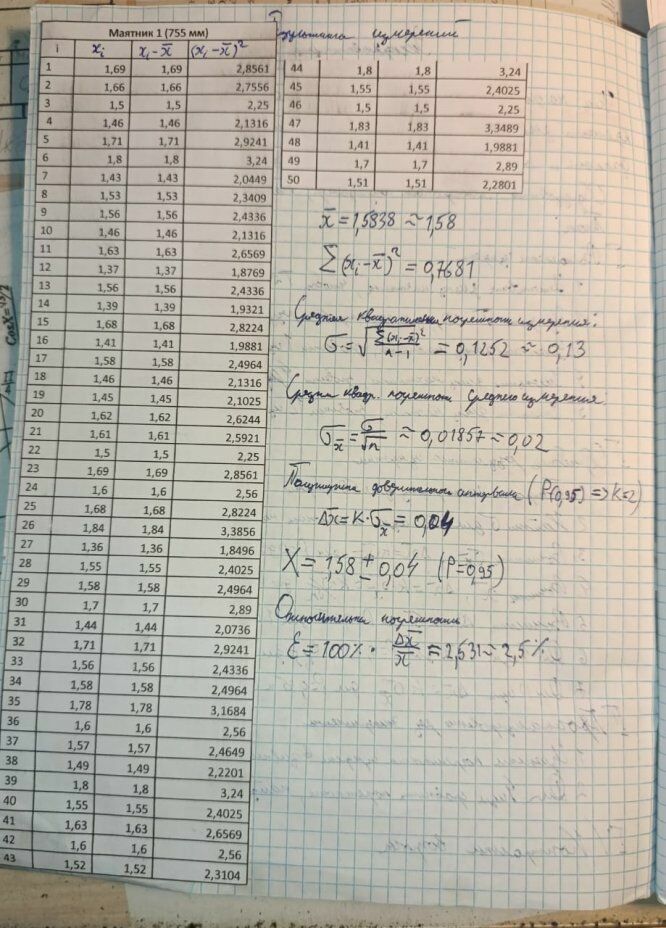 Маятник 1 (755 мм)
i xᵢ xᵢ-x̄ (xᵢ-x̄)²
1 1,69 1,69 2,8561
2 1,66 1,66 2,7556
3 1,5 1,5 2,25
4 1,46 1,46 2,1316
5 1,71 1,71 2,9241
6 1,8 1,8 3,24
7 1,43 1,43 2,0449
8 1,53 1,53 2,3409
9 1,56 1,56 2,4336
10 1,46 1,46 2,1316
11 1,63 1,63 2,6569
12 1,37 1,37 1,8769
13 1,56 1,56 2,4336
14 1,39 1,39 1,9321
15 1,68 1,68 2,8224
16 1,41 1,41 1,9881
17 1,58 1,58 2,4964
18 1,46 1,46 2,1316
19 1,45 1,45 2,1025
20 1,62 1,62 2,6244
21 1,61 1,61 2,5921
22 1,5 1,5 2,25
23 1,69 1,69 2,8561
24 1,6 1,6 2,56
25 1,68 1,68 2,8224
26 1,84 1,84 3,3856
27 1,36 1,36 1,8496
28 1,55 1,55 2,4025
29 1,58 1,58 2,4964
30 1,7 1,7 2,89
31 1,44 1,44 2,0736
32 1,71 1,71 2,9241
33 1,56 1,56 2,4336
34 1,58 1,58 2,4964
35 1,78 1,78 3,1684
36 1,6 1,6 2,56
37 1,57 1,57 2,4649
38 1,49 1,49 2,2201
39 1,8 1,8 3,24
40 1,55 1,55 2,4025
41 1,63 1,63 2,6569
42 1,6 1,6 2,56
43 1,52 1,52 2,3104
измерений
44 1,8 1,8 3,24
45 1,55 1,55 2,4025
46 1,5 1,5 2,25
47 1,83 1,83 3,3489
48 1,41 1,41 1,9881
49 1,7 1,7 2,89
50 1,51 1,51 2,2801
x̄ = 1,5838 ≈ 1,58
∑(xᵢ-x̄)² = 0,7681
Средняя квадратичная погрешность измерения:
σ = √(∑(xᵢ-x̄)²/(n-1)) = 0,1252 ≈ 0,13
Средняя квадр. погрешность среднего измерения
σx̄ = σ/√n ≈ 0,01857 ≈ 0,02
Полуширина доверительного интервала (P(0,95) => K=2)
Δx̄ = K·σx̄ = 0,04
X = 1,58 ± 0,04 (P=0,95)
Относительная погрешность
ε = 100% · Δx̄/x̄ = 2,531 ≈ 2,5%